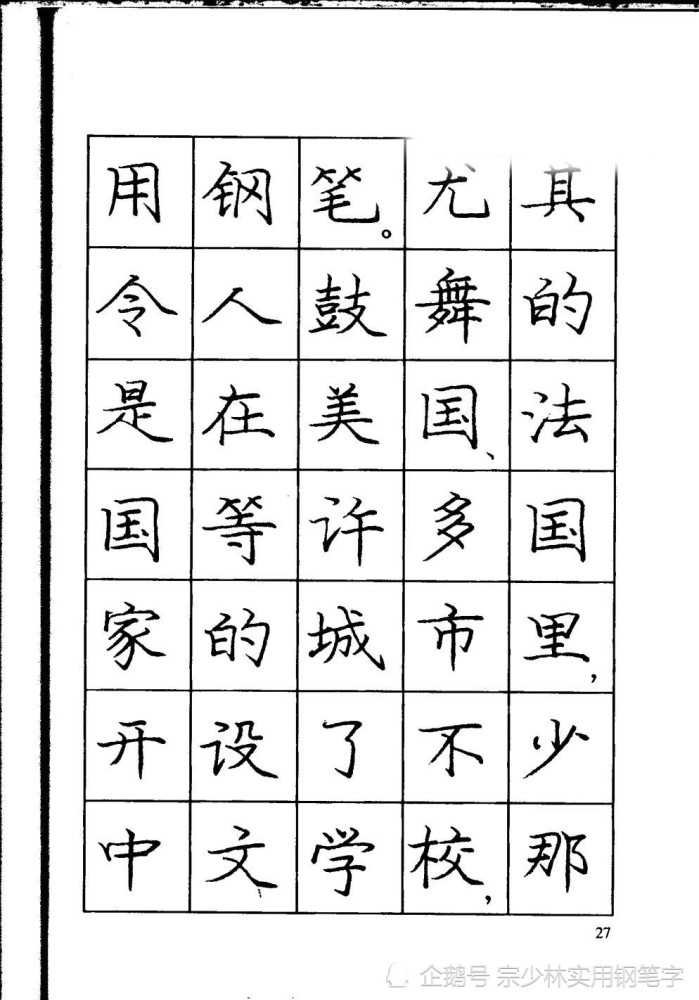 用钢笔。尤其
令人鼓舞的
是在美国、法
国等许多国
家的城市里,
开设了不少
中文学校,那
27
企鹅号 宗少林实用钢笔字